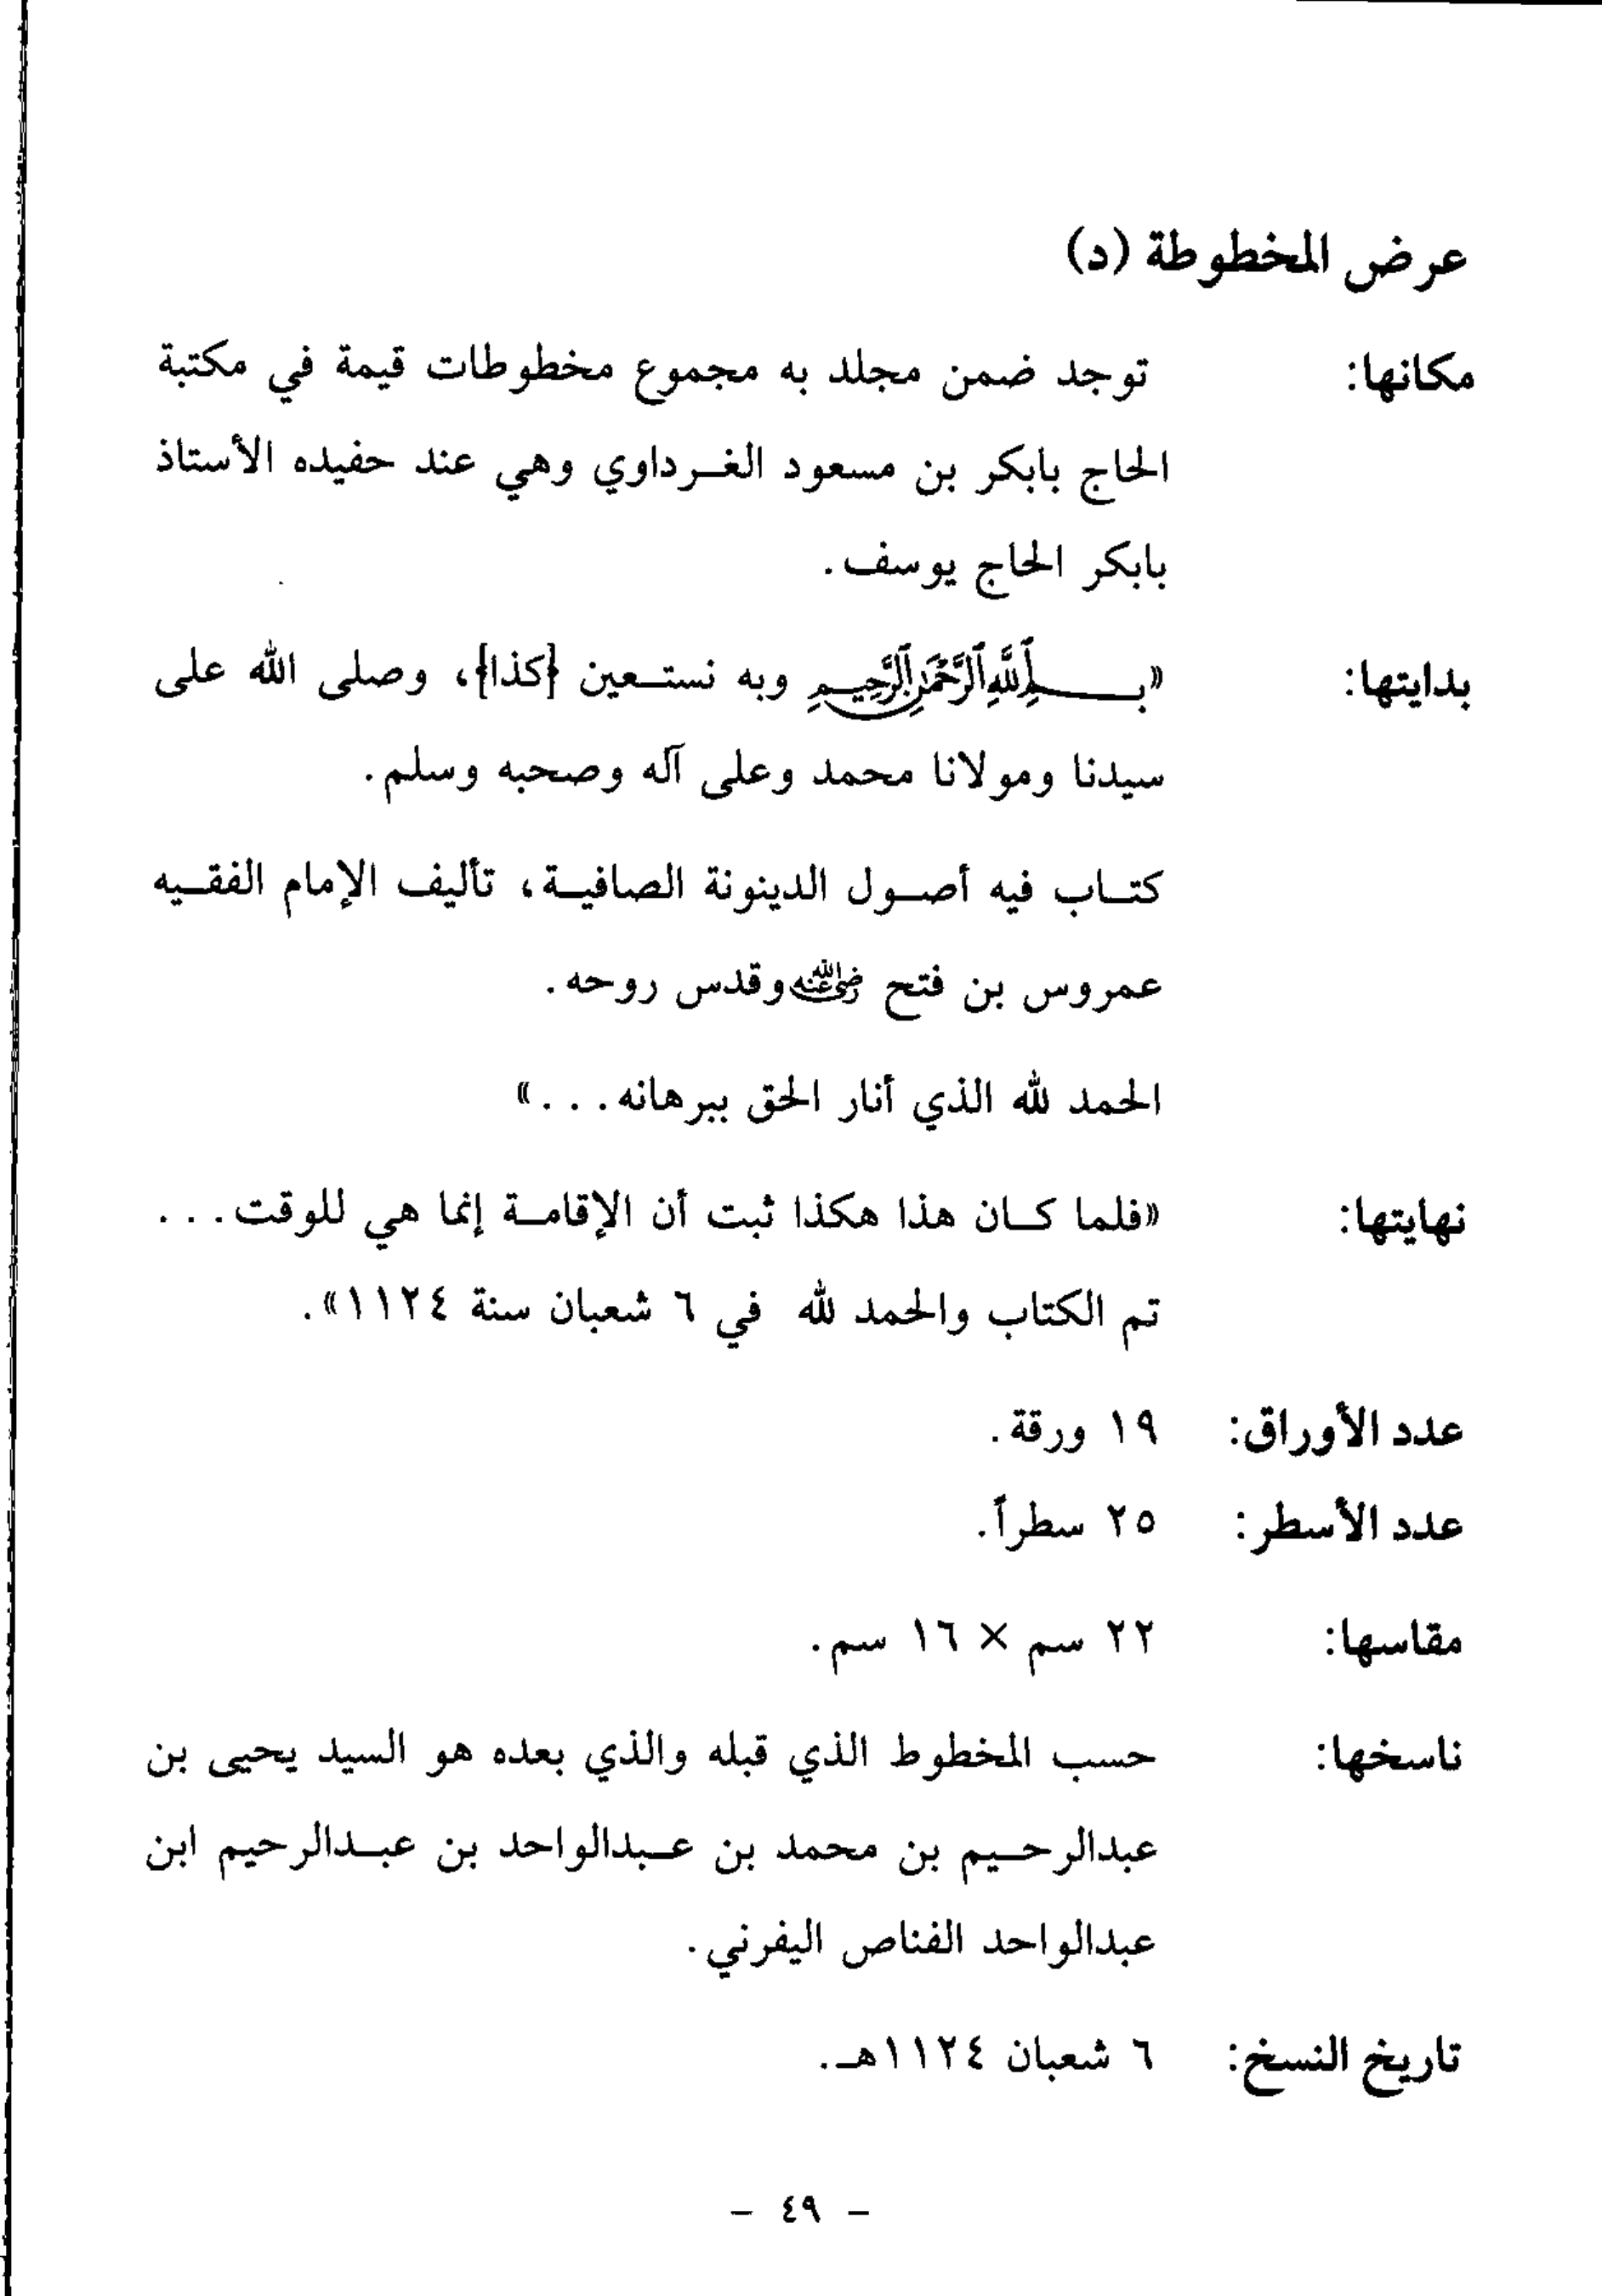 عرض المخطوطة (د)
مكانها: توجد ضمن مجلد به مجموع مخطوطات قيمة في مكتبة
الحاج بابكر بن مسعود الغرداوي وهي عند حفيده الأستاذ
بابكر الحاج يوسف.
بدايتها: «بسم الله الرحمن الرحيم وبه نستعين {كذا}، وصلى الله على
سيدنا ومولانا محمد وعلى آله وصحبه وسلم.
كتاب فيه أصول الدينونة الصافية، تأليف الإمام الفقيه
عمروس بن فتح رضي الله عنه وقدس روحه.
الحمد لله الذي أنار الحق ببرهانه...»
نهايتها: «فلما كان هذا هكذا ثبت أن الإقامة إنما هي للوقت...
تم الكتاب والحمد لله في ٦ شعبان سنة ١١٢٤».
عدد الأوراق: ١٩ ورقة.
عدد الأسطر: ٢٥ سطراً.
مقاسها: ٢٢ سم × ١٦ سم.
ناسخها: حسب المخطوط الذي قبله والذي بعده هو السيد يحيى بن
عبدالرحيم بن محمد بن عبدالواحد بن عبدالرحيم ابن
عبدالواحد الفناص اليفرني.
تاريخ النسخ: ٦ شعبان ١١٢٤هـ.
- ٤٩ -